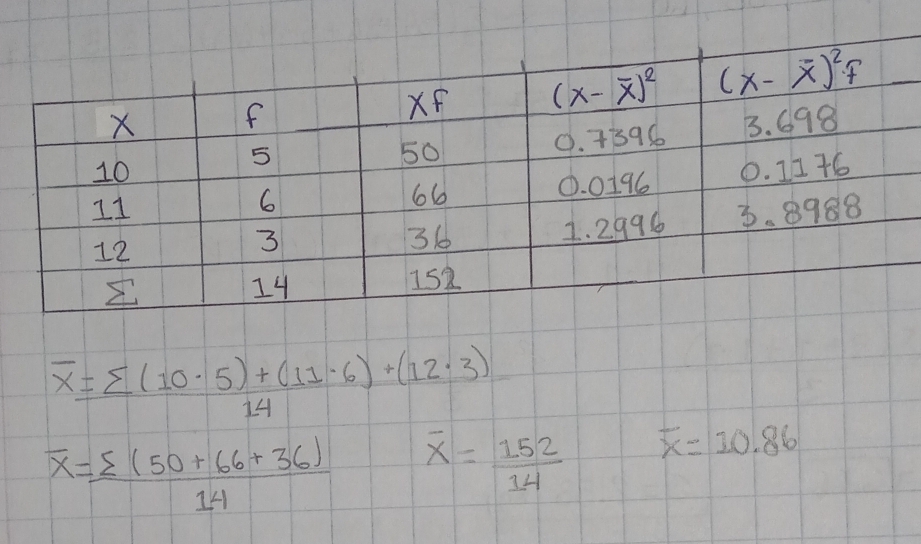 X f Xf (x - x̄)² (x - x̄)²f
10 5 50 0.7396 3.698
11 6 66 0.0196 0.1176
12 3 36 1.2996 3.8988
Σ 14 152
x̄ = Σ(10·5)+(11·6)+(12·3)
14
x̄ = Σ(50+66+36) x̄ = 152 x̄ = 10.86
14 14